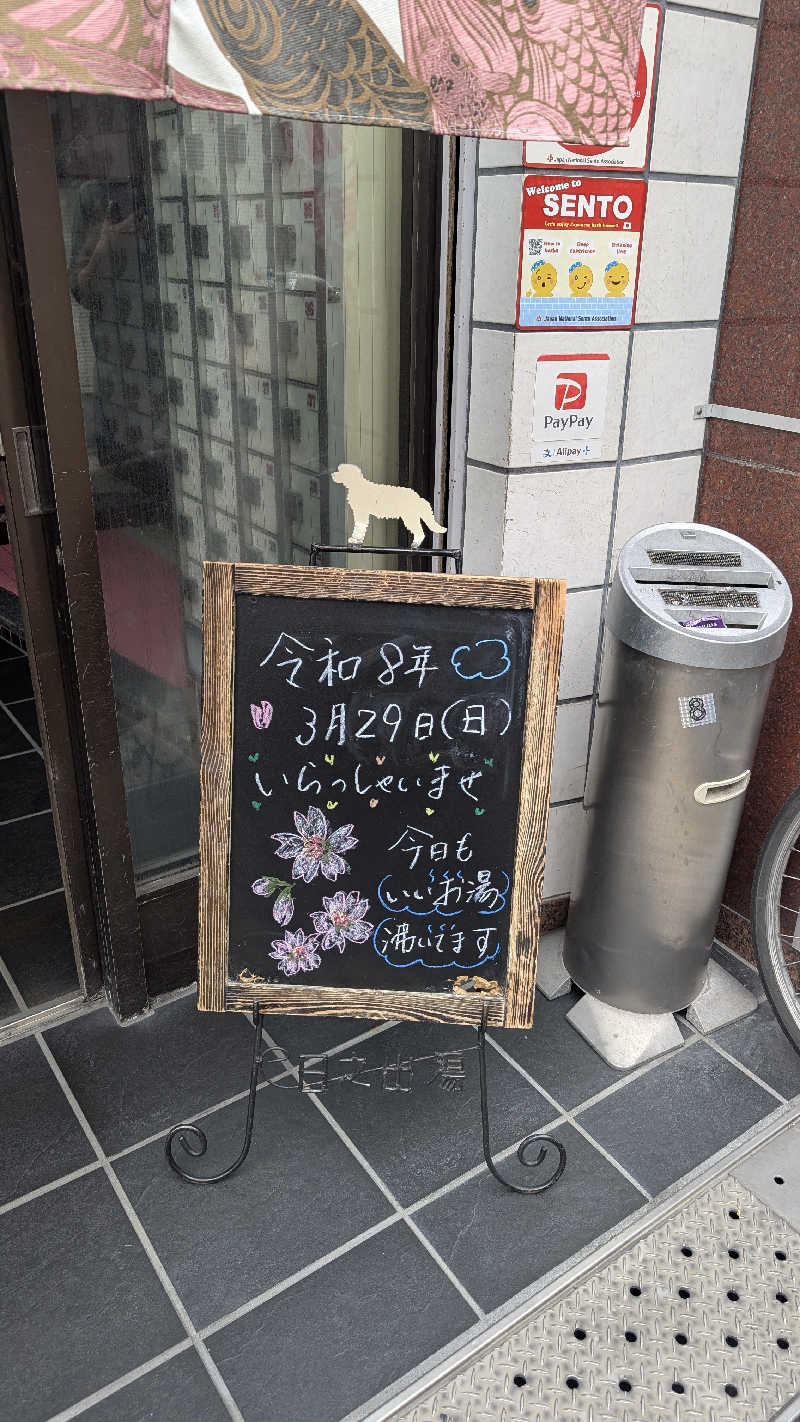 Japan National Sento Association
Welcome to
SENTO
Let's enjoy Japanese bath house!
How to bathe
Deep experience
Relaxing time
Japan National Sento Association
PayPay
Alipay+
令和8年
3月29日(日)
いらっしゃいませ
今日も
いいお湯
沸いてます
8
日之出湯